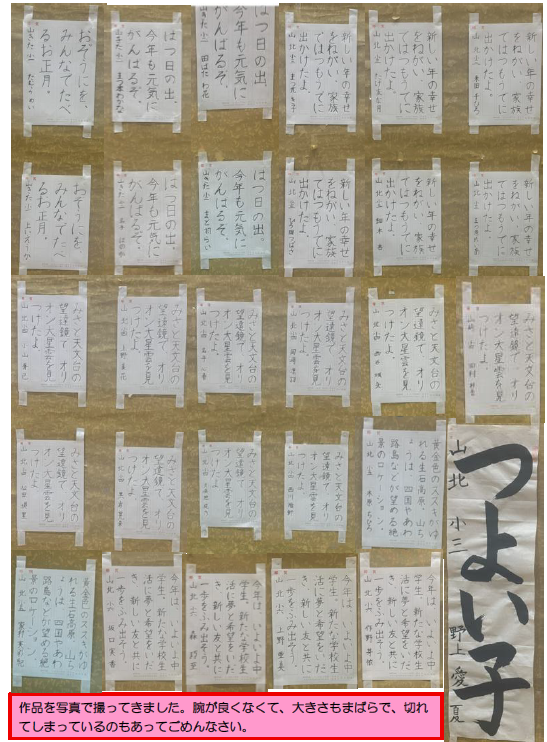 おぞうにを、
みんなでたべ
るお正月。
はつ日の出、
今年も元気に
がんばるぞ。
はつ日の出、
今年も元気に
がんばるぞ。
新しい年の幸せ
をねがい 家族
ではつもうでに
出かけたよ。
新しい年の幸せ
をねがい 家族
ではつもうでに
出かけたよ。
新しい年の幸せ
をねがい 家族
ではつもうでに
出かけたよ。
おぞうにを
みんなでたべ
るお正月
はつ日の出、
今年も元気に
がんばるぞ。
はつ日の出、
今年も元気に
がんばるぞ。
新しい年の幸せ
をねがい 家族
ではつもうでに
出かけたよ。
新しい年の幸せ
をねがい 家族
ではつもうでに
出かけたよ。
新しい年の幸せ
をねがい 家族
ではつもうでに
出かけたよ。
みさと天文台の
望遠鏡で オリ
オン大星雲を見
つけたよ。
みさと天文台の
望遠鏡で オリ
オン大星雲を見
つけたよ。
みさと天文台の
望遠鏡で オリ
オン大星雲を見
つけたよ。
みさと天文台の
望遠鏡で オリ
オン大星雲を見
つけたよ。
みさと天文台の
望遠鏡で オリ
オン大星雲を見
つけたよ。
みさと天文台の
望遠鏡で オリ
オン大星雲を見
つけたよ。
みさと天文台の
望遠鏡で オリ
オン大星雲を見
つけたよ。
みさと天文台の
望遠鏡で オリ
オン大星雲を見
つけたよ。
みさと天文台の
望遠鏡で オリ
オン大星雲を見
つけたよ。
みさと天文台の
望遠鏡で オリ
オン大星雲を見
つけたよ。
黄金色のススキがゆ
れる生石高原。山ち
ょうは 四国やあわ
路島などが望める絶
景のロケーション。
つよい子
山北小三 野上愛夏
黄金色のススキがゆ
れる生石高原。山ち
ょうは 四国やあわ
路島などが望める絶
景のロケーション。
今年は、いよいよ中
学生。新たな学校生
活に夢と希望をいだ
き、新しい友と共に
一歩をふみ出そう。
今年は、いよいよ中
学生。新たな学校生
活に夢と希望をいだ
き、新しい友と共に
一歩をふみ出そう。
今年は、いよいよ中
学生。新たな学校生
活に夢と希望をいだ
き、新しい友と共に
一歩をふみ出そう。
今年は、いよいよ中
学生。新たな学校生
活に夢と希望をいだ
き、新しい友と共に
一歩をふみ出そう。
作品を写真で撮ってきました。腕が良くなくて、大きさもまばらで、切れ
てしまっているのもあってごめんなさい。